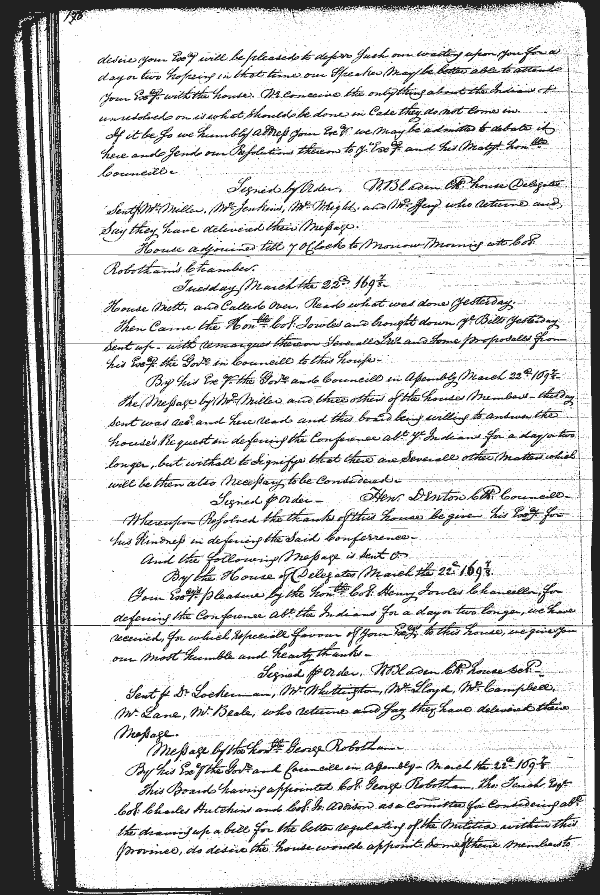 desire your Exc.y will be pleased to deferr Such our waiting upon you for a
day or two hopeing in that time our Speaker may be better able to attend
your Exc.y with the house. We conceive the only thing about the Indians
unresolved on is what should be done in Case they do not come in
If it be So we humbly your Exc.y we may be admitted to debate it
here and Send our Resolution thereon to y.r Exc.y and his Maty.s hon.ble
Councill
Signed by Order. W Bladen Clk house Delegates
Sent Mr. Miller, Mr. Jenkins, Mr. Wright, and Mr. who returne and
Say they have delivered their Message.
House adjourned till 7 OClock to Morrow Morning att Col.
Robotham's Chamber.
Tuesday March the 22d. 169
House Mett, and Called over. Read what was done yesterday.
Then Came the Hon.ble Col. Jowles and brought down y.e Bills yesterday
Sent up with remarques thereon and Some proposalls from
his Exc.y the Gov.r in Councill to this house
By his Exc.y the Gov.r and Councill in Assembly March 22d 169
The Message by Mr. Miller and three others of the houses Members this day
sent was and here read and this board being willing to answer the
houses Request in deferring the Conference ab.t y.e Indians for a day or two
longer, but withall to Signifye that there are Severall other Matters which
will be then also necessary to be Considered
Signed p Order Hen: Denton Clk Councill
Whereupon Resolved the thanks of this house be given his Exc.y for
his kindness in deferring the Said Conferrence
And the following Message is sent
By the House of Delegates March the 22d 169
Your Exc.ys pleasure by the hon.ble Col. Henry Jowles Chancellor for
deferring the Conference ab.t the Indians for a day or two longer, we have
received, for which especiall favour of your Exc.y to this house, we give you
our most humble and hearty thanks
Signed p Order. W Bladen Clk house
Sent p Dr. Lockerman, Mr. Whittington, Mr. Lloyd, Mr. Campbell,
Mr. Lane, Mr. Beale, who returne and Say they have delivered their
Message.
Message by the hon.ble George Robotham
By his Exc.y the Gov.r and Councill in Assembly March the 22d 169
This Board having appointed Col. George Robotham, Tho. Tench Esq.
Col. Charles Hutchins and Col. Jn Addison as a Comittee for Considering ab.t
the drawing up a bill for the better regulating of the Militia within this
Province, do desire the house would appoint Some of their members to